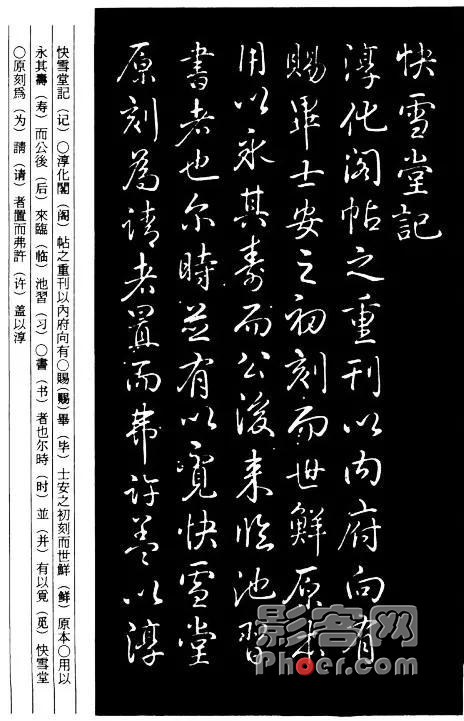 快雪堂記
淳化阁帖之重刊以内府向有
賜畢士安之初刻而世鮮原本
用以永其壽而公後来臨池習
書者也尔時並有以覓快雪堂
原刻為請者置而弗許盖以淳
快雪堂記（记）○淳化閣（阁）帖之重刊以內府向有○賜（赐）畢（毕）士安之初刻而世鮮（鲜）原本○用以
永其壽（寿）而公後（后）來臨（临）池習（习）○書（书）者也尔時（时）並（并）有以覓（觅）快雪堂
○原刻爲（为）請（请）者置而弗許（许）盖以淳
影客网
Phoer.com